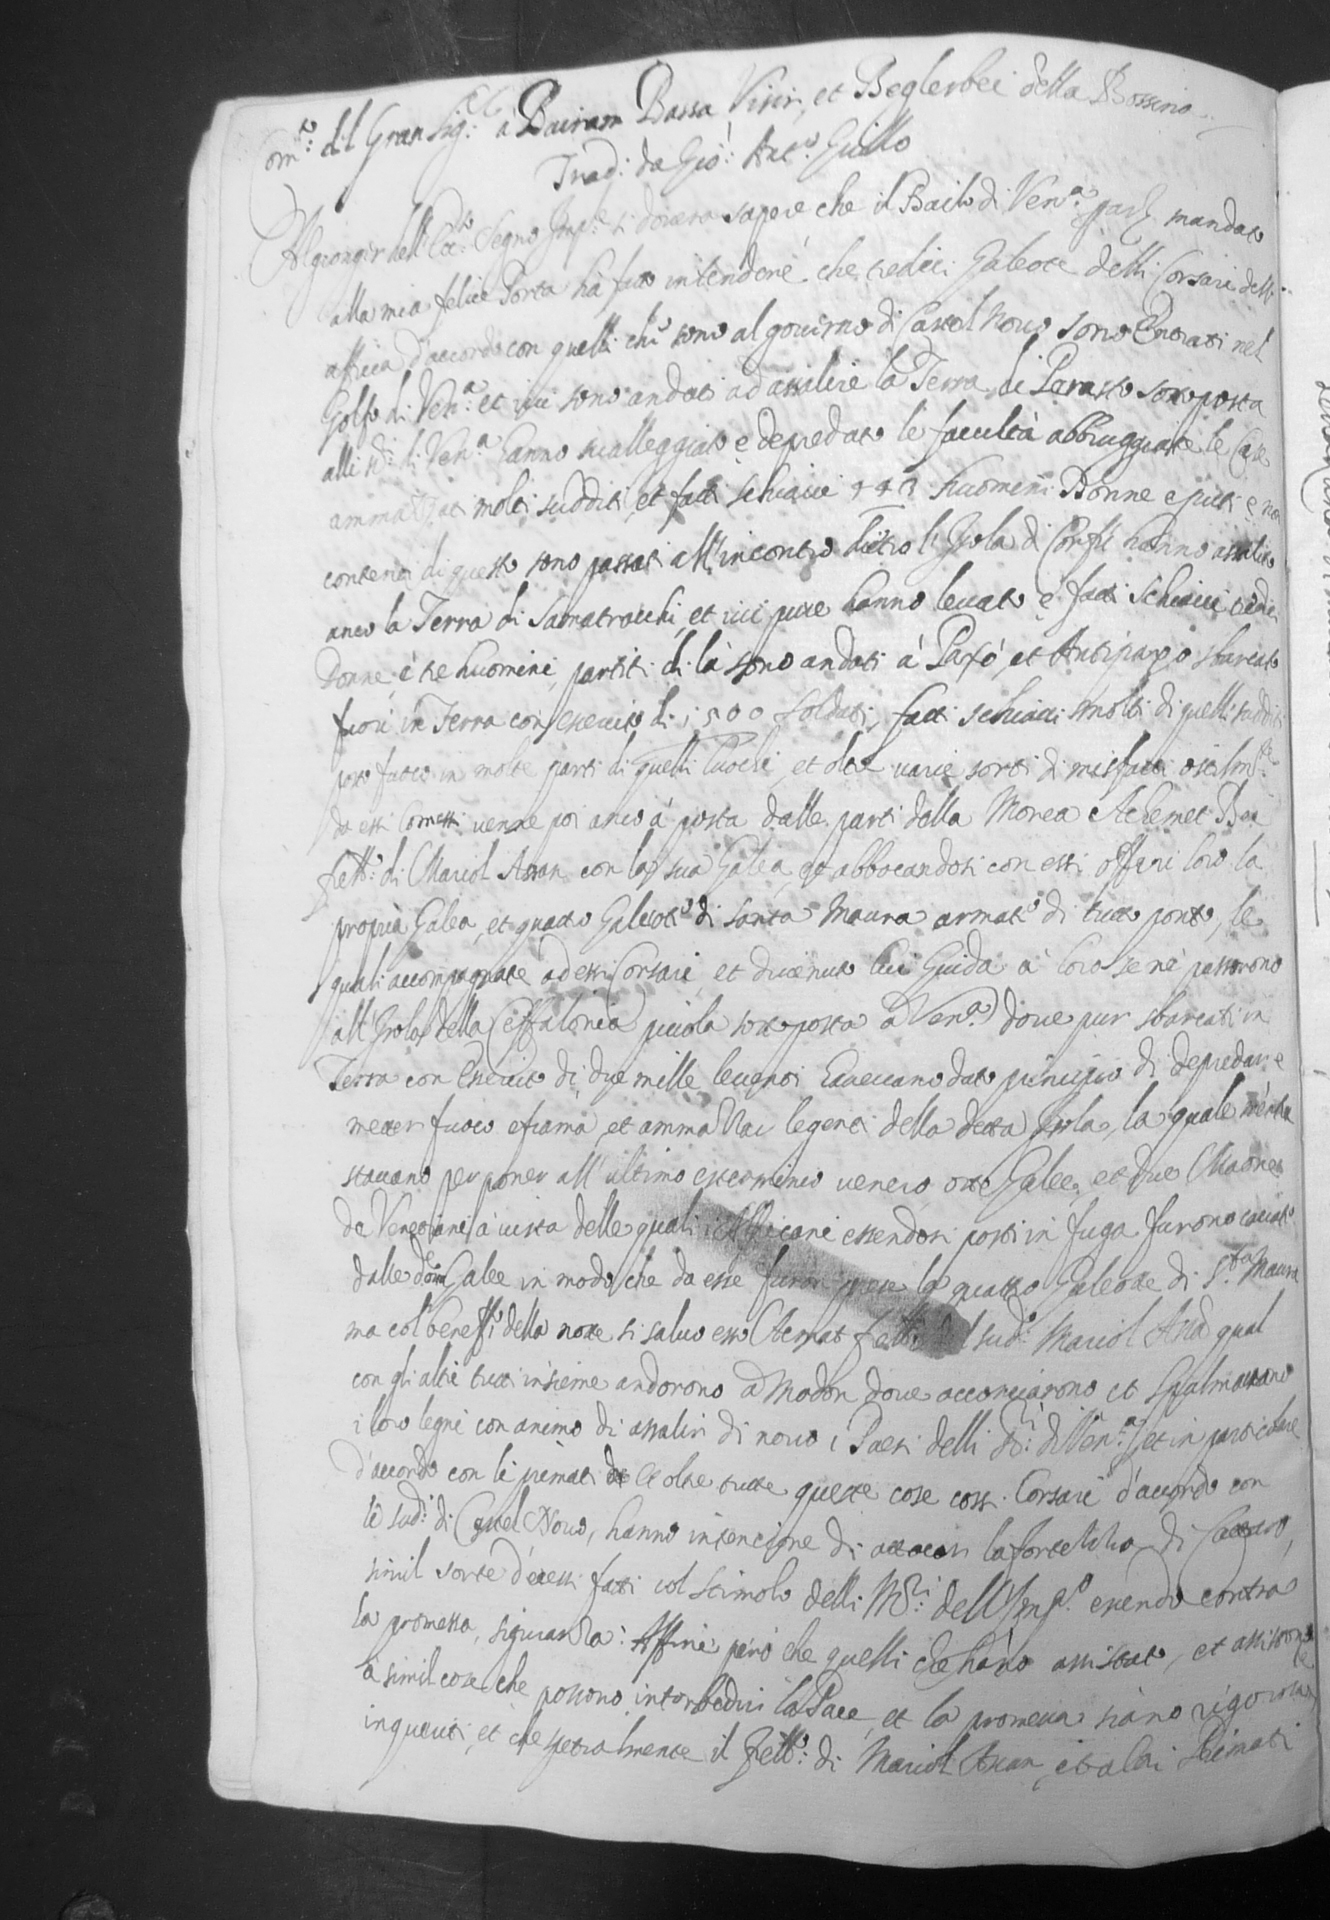 Com.to del Gran Sig.r à Bairam Bassa Visir, et Beglerbei della Bossina
Trad. da Gio: Ant.o Grillo
Al gionger dell' Ecc.so Segno Imp.le si doverà sapere che il Bailo di Ven.a mandato
alla mia felice Porta hà fatto intendere che sedici Galeote delli Corsari dell'
affrica d'accordo con quelli che sono al governo di Castel Novo sono Entrati nel
Golfo di Ven.a et ivi sono andati ad assalire la Terra di Perasto sottoposta
alli S.ri di Ven.a hanno svalleggiato e depredato le facultà abbruggiate le Case
ammazzati molti sudditi, et fatti schiavi 443 huomini Donne e putti e non
contenti di questo sono passati all'incontro dietro l'Isola di Corfù hanno assalito
anco la Terra di Samatrachi, et ivi pure hanno levato e fatti schiavi
Donne, e tre huomini, partiti di là sono andati à Paxò, et Antipaxo sbarcato
fuori in Terra con essercito di 1500 soldati, fatti schiavi molti di quelli sudditi
posto fuoco in molte parti di quelli luochi, et oltre varie sorti di misfatti
da essi Comessi venne poi anco à posta dalle parti della Morea Achemet Bei
frett.o di Mariol Assan con la sua Galea, et abbocandosi con essi offerì loro la
propria Galea, et quatro Galeotte di Santa Maura armate di tutto ponto, le
quali accompagnate ad essi Corsari et divenuto lui Guida à loro se nè passorono
all'Isola della Ceffalonia piciola sottoposta à Ven.a dove pur sbarcati in
Terra con Essercito di due mille leventi havevano dato principio di depredar e
metter fuoco e fiama, et ammazzar le genti della detta Isola, la quale mentre
stavano per poner all'ultimo esterminio venero otto Galee, et due Maone
de Venetiani à vista delle quali i Affricani essendosi posti in fuga furono cacciati
dalle dette Galee in modo che da esse furon prese le quatro Galeotte di S.ta Maura
ma col beneff.o della notte si salvò esso Acmat frett.o del sud.o Mariol Assan qual
con gli altri tutti insieme andorono à Modon dove acconciarono et spalmarono
i loro legni con animo di assalir di novo i Paesi delli S.ri di Ven.a et in particolare
d'accordo con li primati et oltre tutte queste cose essi Corsari d'accordo con
li sud.i di Castel Novo, hanno intencione di attacar la fortezza di Cattaro,
simil sorte d'eccessi fatti col stimolo delli M.ri dell'Imp.o essendo contra
la promessa, siguranza: Affine però che quelli che hano assistito, et assistono
à simil cose che possono intorbedir la Pace, et la promessa siano rigorosam.te
inquiriti, et che spetialmente il frett.o di Mariol Assan, et altri Primati